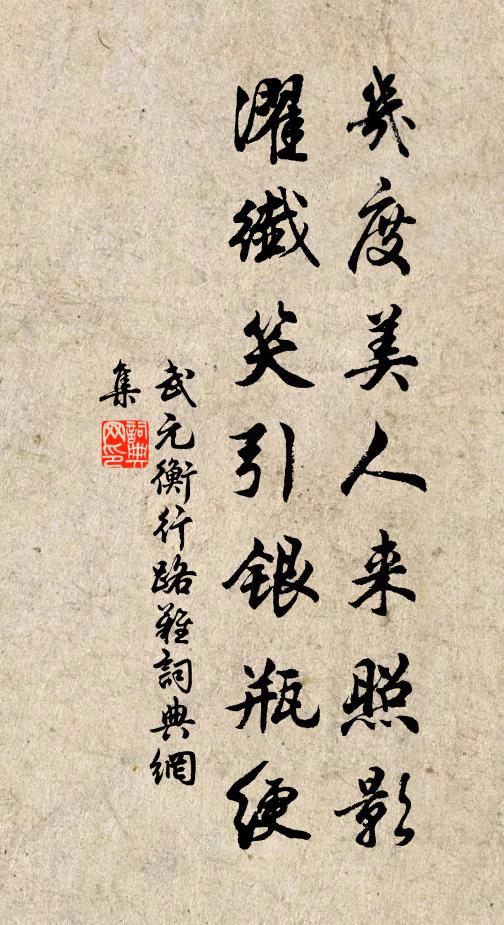 幾度美人来照影
濯纖笑引銀瓶綆
武元衡行路難詞典網
集
詞典
网印